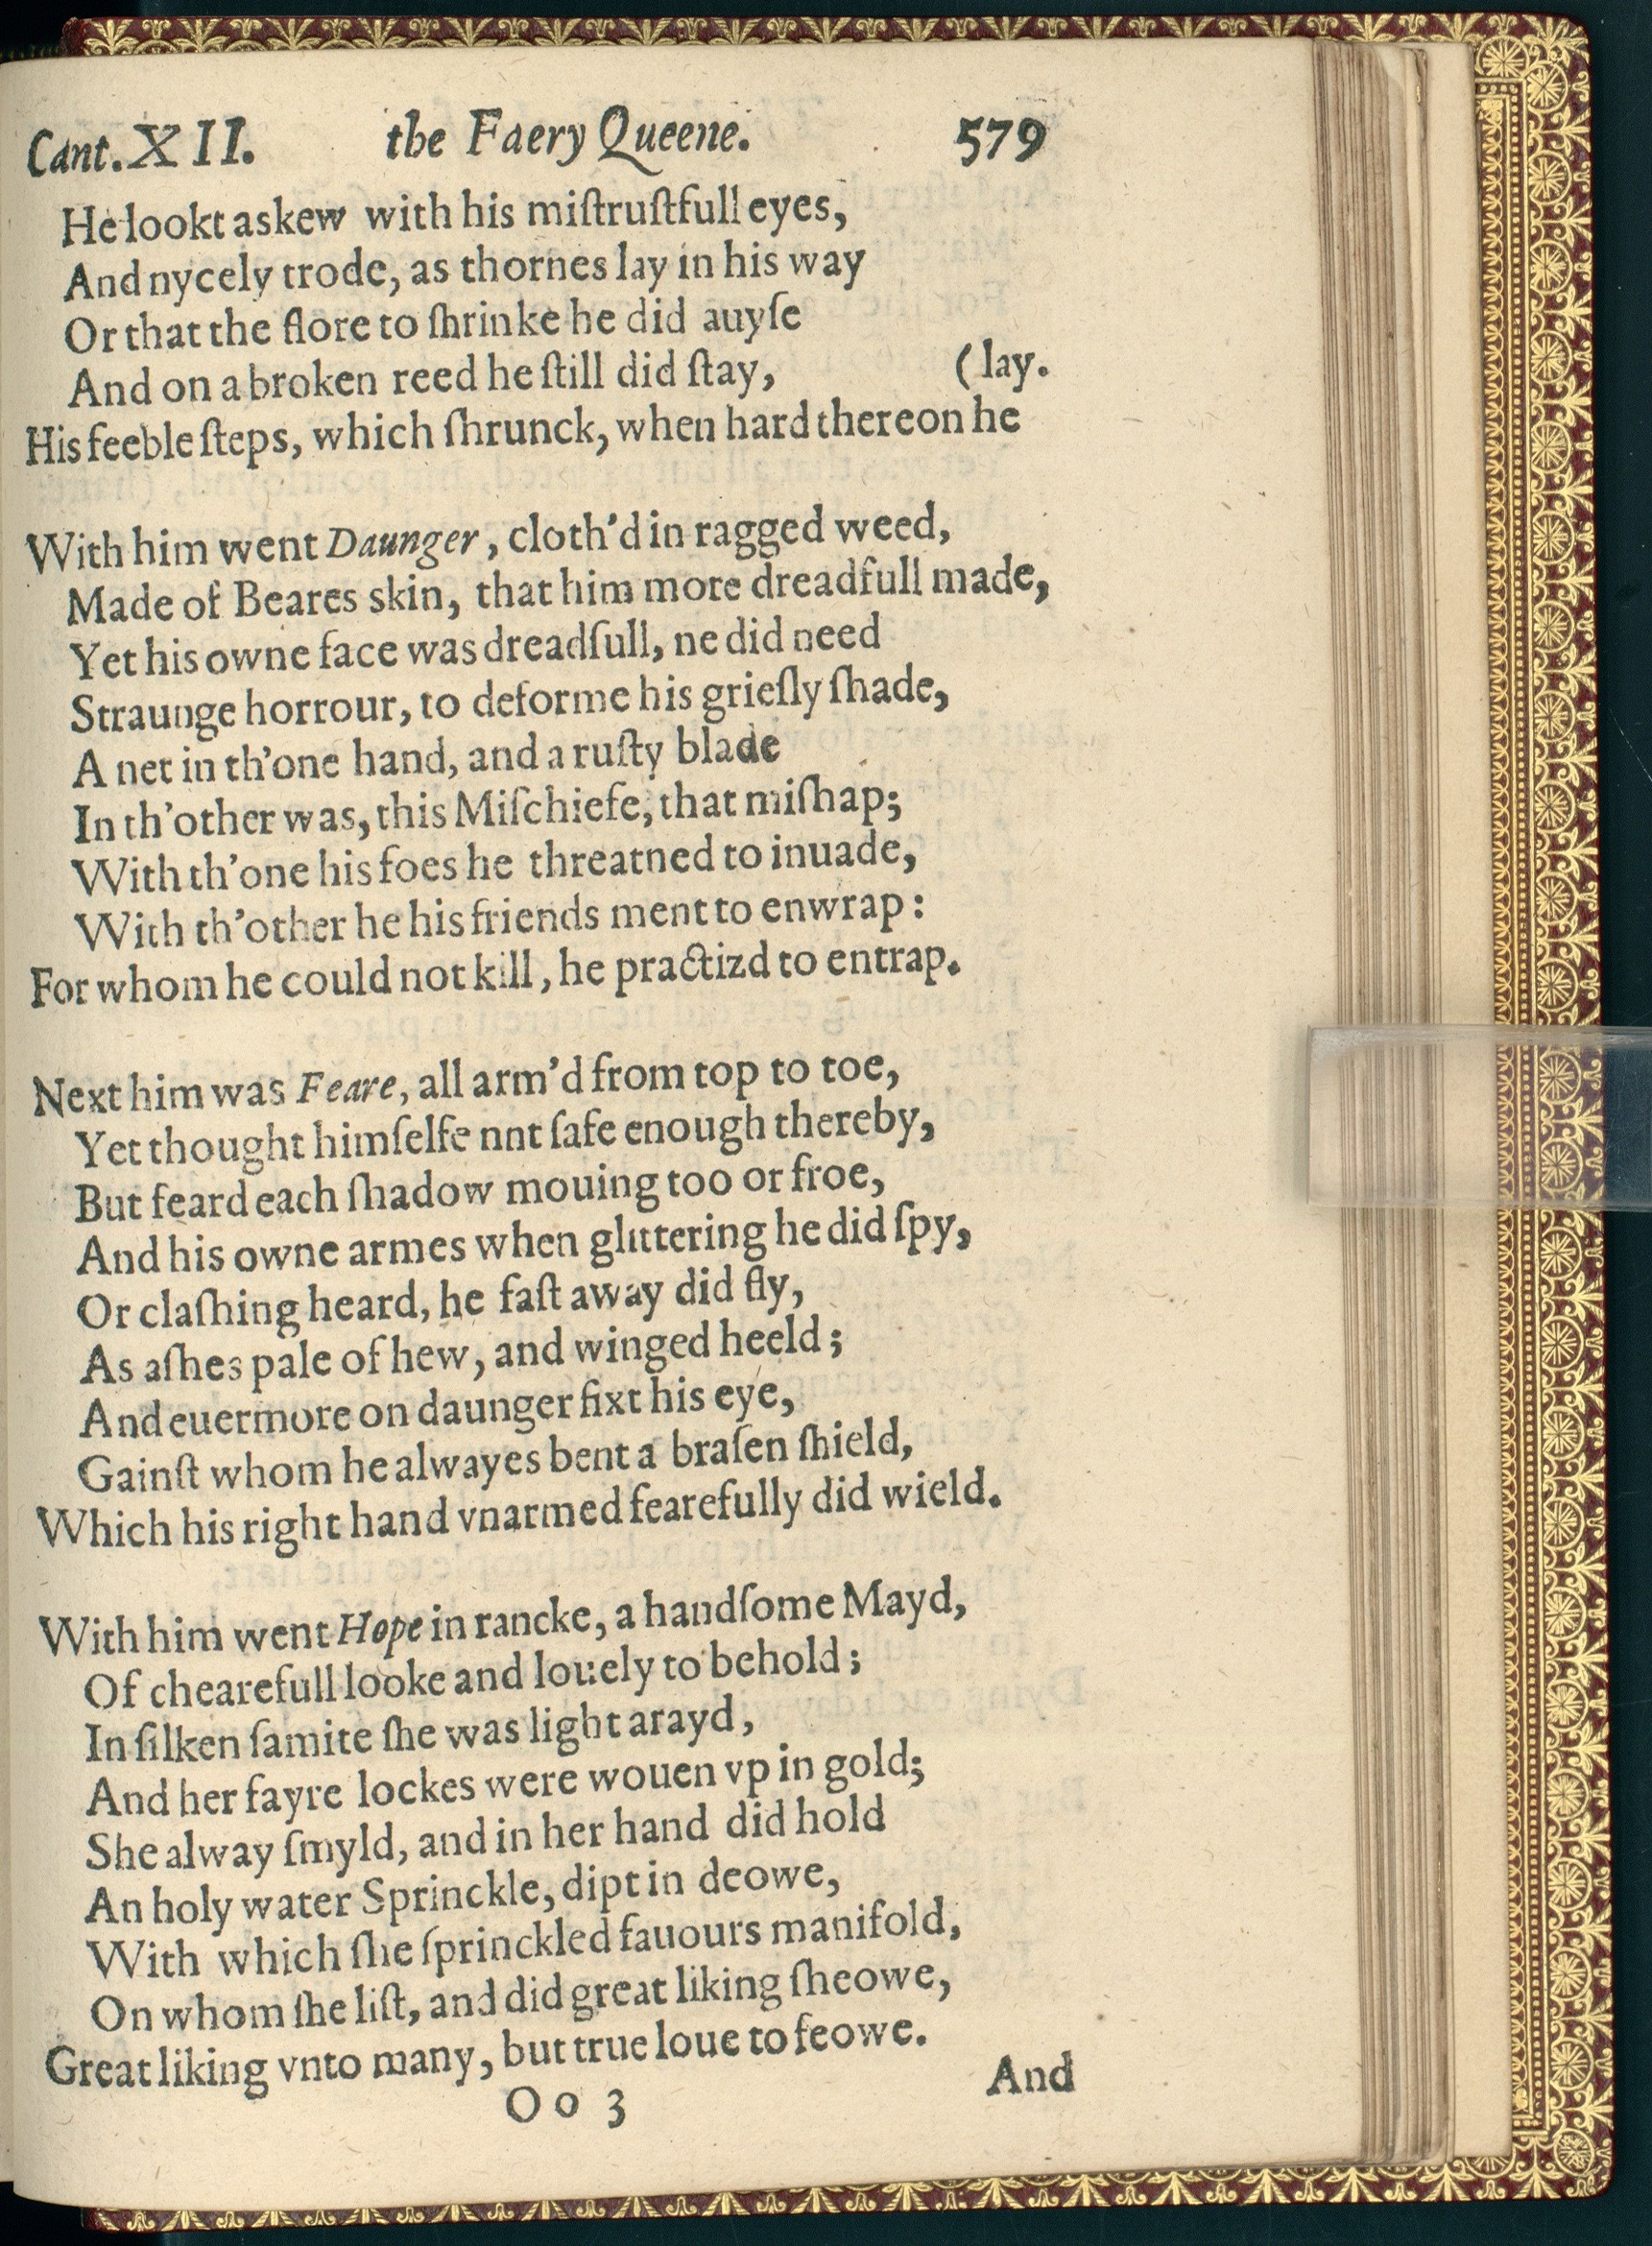 Cant. XII. the Faery Queene. 579
He lookt askew with his miſtruſtfull eyes,
And nycely trode, as thornes lay in his way
Or that the flore to ſhrinke he did auyſe
And on a broken reed he ſtill did ſtay, (lay.
His feeble ſteps, which ſhrunck, when hard thereon he

With him went Daunger, cloth'd in ragged weed,
Made of Beares skin, that him more dreadfull made,
Yet his owne face was dreadſull, ne did need
Straunge horrour, to deforme his grieſly ſhade,
A net in th'one hand, and a ruſty blade
In th'other was, this Miſchiefe, that miſhap;
With th'one his foes he threatned to inuade,
With th'other he his friends ment to enwrap:
For whom he could not kill, he practizd to entrap.

Next him was Feare, all arm'd from top to toe,
Yet thought himſelfe nnt ſafe enough thereby,
But feard each ſhadow mouing too or froe,
And his owne armes when glittering he did ſpy,
Or claſhing heard, he faſt away did fly,
As aſhes pale of hew, and winged heeld;
And euermore on daunger fixt his eye,
Gainſt whom he alwayes bent a braſen ſhield,
Which his right hand vnarmed fearefully did wield.

With him went Hope in rancke, a handſome Mayd,
Of chearefull looke and louely to behold;
In ſilken ſamite ſhe was light arayd,
And her fayre lockes were wouen vp in gold;
She alway ſmyld, and in her hand did hold
An holy water Sprinckle, dipt in deowe,
With which ſhe ſprinckled fauours manifold,
On whom ſhe liſt, and did great liking ſheowe,
Great liking vnto many, but true loue to feowe.
Oo 3 And